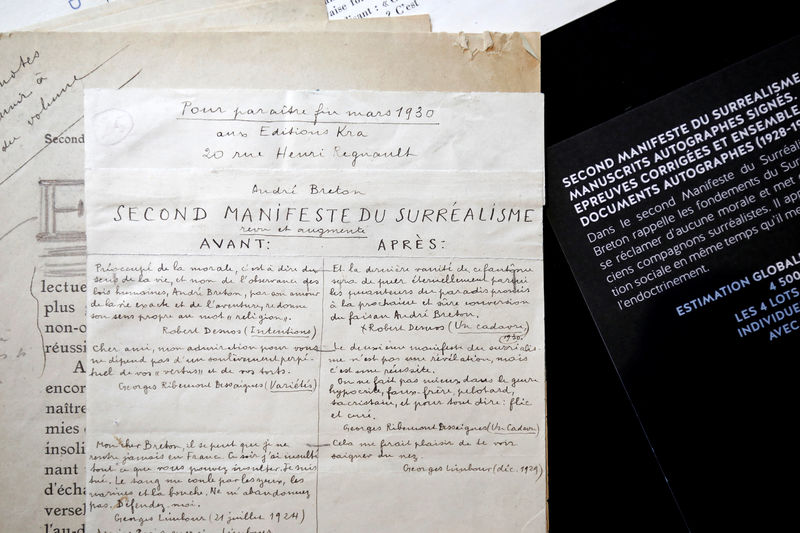 aise fo
lisant : «
? C'est
notes
au volume
Second
lectue
plus
non-o
réussi
A
encor
naître
mies
insoli
nant
d'écha
versel
l'au-d
Pour paraître fin mars 1930
aux Editions Kra
20 rue Henri Regnault
André Breton
SECOND MANIFESTE DU SURRÉALISME
revu et augmenté
AVANT:
Préoccupé de la morale, c'est à dire du
sens de la vie, et non de l'observance des
lois humaines, André Breton, par son amour
de la vie exacte et de l'aventure, redonne
son sens propre au mot « religion ».
Robert Desnos (Intentions)
Cher ami, mon admiration pour vous
ne dépend pas d'un soulèvement perpé-
tuel de vos « vertus » et de vos torts.
Georges Ribemont Dessaignes (Variétés)
Mon cher Breton, il se peut que je ne
rentre jamais en France. Ce soir j'ai insulté
tout ce que vous pouvez insulter. Je suis
tué. Le sang me coule par les yeux, les
narines et la bouche. Ne m'abandonnez
pas. Défendez-moi.
Georges Limbour (21 juillet 1924)
Limbour
APRÈS:
Et la dernière vanité de ce fantôme
sera de puer éternellement parmi
les puanteurs du paradis promis
à la prochaine et sûre conversion
du faisan André Breton.
Robert Desnos (Un cadavre
1930.
Le deuxième manifeste du surréalis-
me n'est pas une révélation, mais
c'est une réussite.
On ne fait pas mieux dans le genre
hypocrite, faux-frère, pelotard,
sacristain, et pour tout dire : flic
et curé.
Georges Ribemont Dessaignes (Un Cadavre)
Cela me ferait plaisir de te voir
saigner du nez.
Georges Limbour (déc. 1929)
SECOND MANIFESTE DU SURREALISME
MANUSCRITS AUTOGRAPHES SIGNÉS.
EPREUVES CORRIGÉES ET ENSEMBLE
DOCUMENTS AUTOGRAPHES (1928-19
Dans le second Manifeste du Surréali
Breton rappelle les fondements du Sur
se réclamer d'aucune morale et met
ciens compagnons surréalistes. Il app
tion sociale en même temps qu'il me
l'endoctrinement.
ESTIMATION GLOBAL
4 500
LES 4 LOTS
INDIVIDUE
AVEC